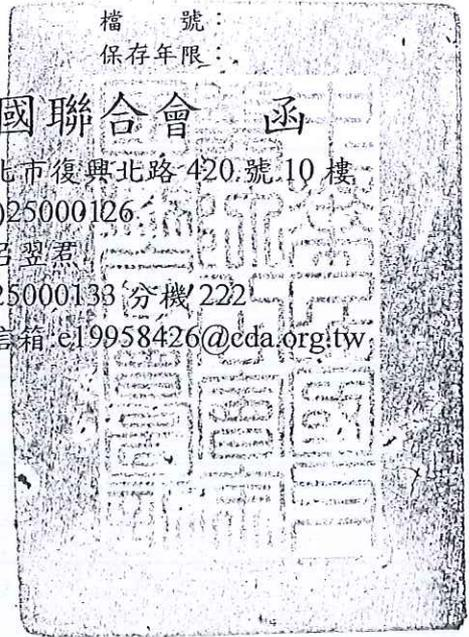 檔　　號：
保存年限：
國聯合會　函
北市復興北路420號10樓
)25000126
召翌君
25000133 分機 222
信箱 e19958426@cda.org.tw